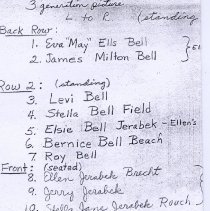 3 generation picture
L to R (standing
Back Row:
1. Eva "May" Ells Bell
2. James Milton Bell
Row 2: (standing)
3. Levi Bell
4. Stella Bell Field
5. Elsie Bell Jerabek - Ellen's
6. Bernice Bell Beach
7. Roy Bell
Front: (seated)
8. Ellen Jerabek Brecht
9. Jerry Jerabek
10. Stella Jane Jerabek Rouch